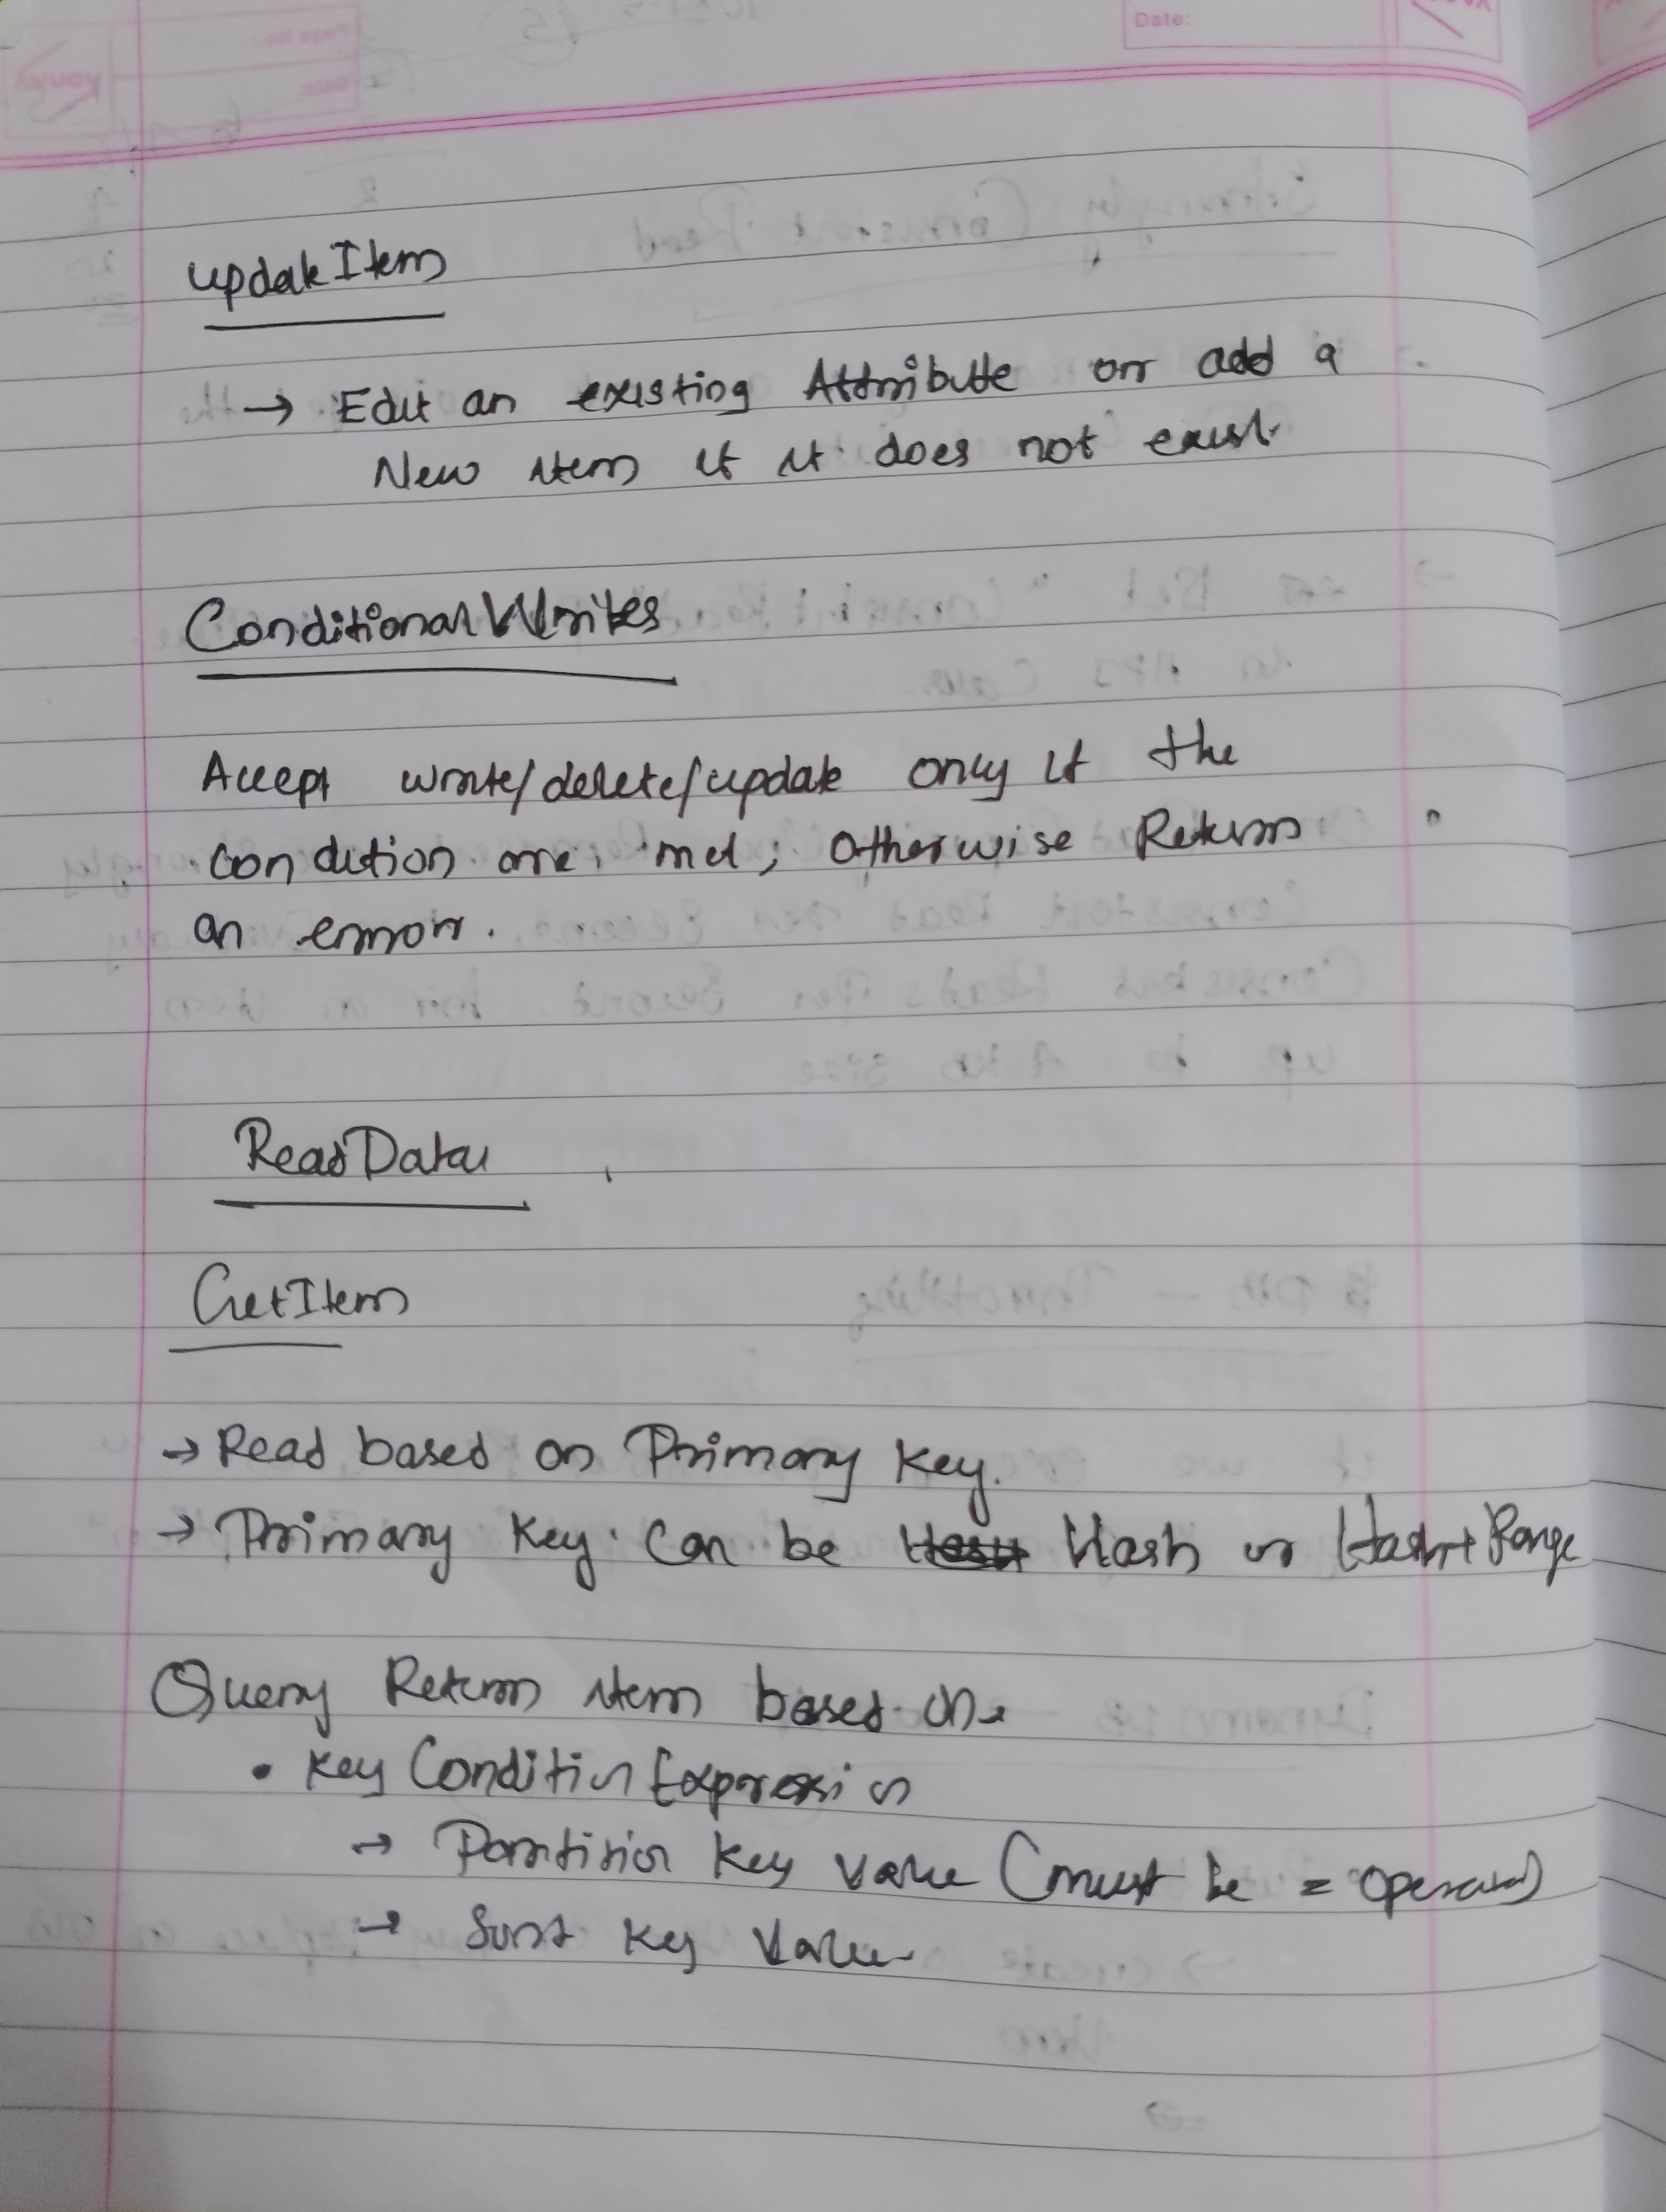 Date:
UpdateItem
→ Edit an existing Attribute or add a
New item if it does not exist.
ConditionalWrites
Accept write/delete/update only if the
condition are met; Otherwise Return
an error.
Read Data
GetItem
→ Read based on Primary Key.
→ Primary Key Can be Hash or Hash+Range
Query Return item based on
• Key Condition Expression
→ Partition Key Value (must be = operator)
→ Sort Key Value